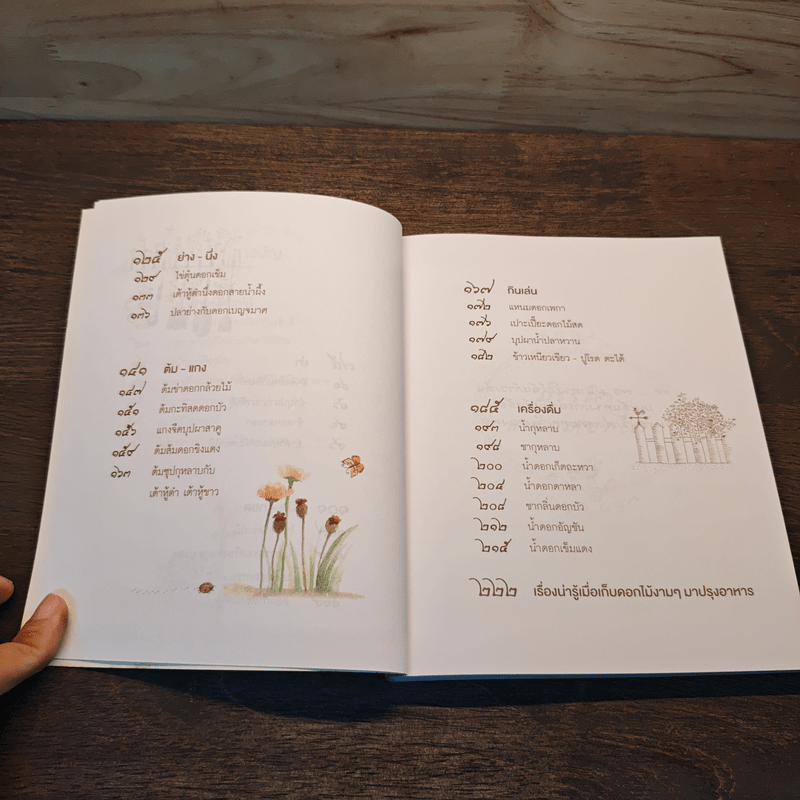 ๑๒๕ ย่าง - นึ่ง
๑๒๙ ไข่ตุ๋นดอกเข็ม
๑๓๓ เต้าหู้ดำนึ่งดอกสายน้ำผึ้ง
๑๓๖ ปลาย่างกับดอกเบญจมาศ
๑๔๑ ต้ม - แกง
๑๔๗ ต้มข่าดอกกล้วยไม้
๑๕๑ ต้มกะทิสดดอกบัว
๑๕๖ แกงจืดบุปผาสาคู
๑๕๙ ต้มส้มดอกขิงแดง
๑๖๓ ต้มซุปกุหลาบกับ
เต้าหู้ดำ เต้าหู้ขาว
๑๖๗ กินเล่น
๑๗๒ แหนมดอกเพกา
๑๗๖ เปาะเปี๊ยะดอกไม้สด
๑๗๙ บุปผาน้ำปลาหวาน
๑๘๒ ข้าวเหนียวเขียว - ปูโรด ตะได้
๑๘๕ เครื่องดื่ม
๑๙๓ น้ำกุหลาบ
๑๙๘ ชากุหลาบ
๒๐๐ น้ำดอกเก็ดถะหวา
๒๐๔ น้ำดอกดาหลา
๒๐๘ ชากลิ่นดอกบัว
๒๑๒ น้ำดอกอัญชัน
๒๑๕ น้ำดอกเข็มแดง
๒๒๒ เรื่องน่ารู้เมื่อเก็บดอกไม้งามๆ มาปรุงอาหาร